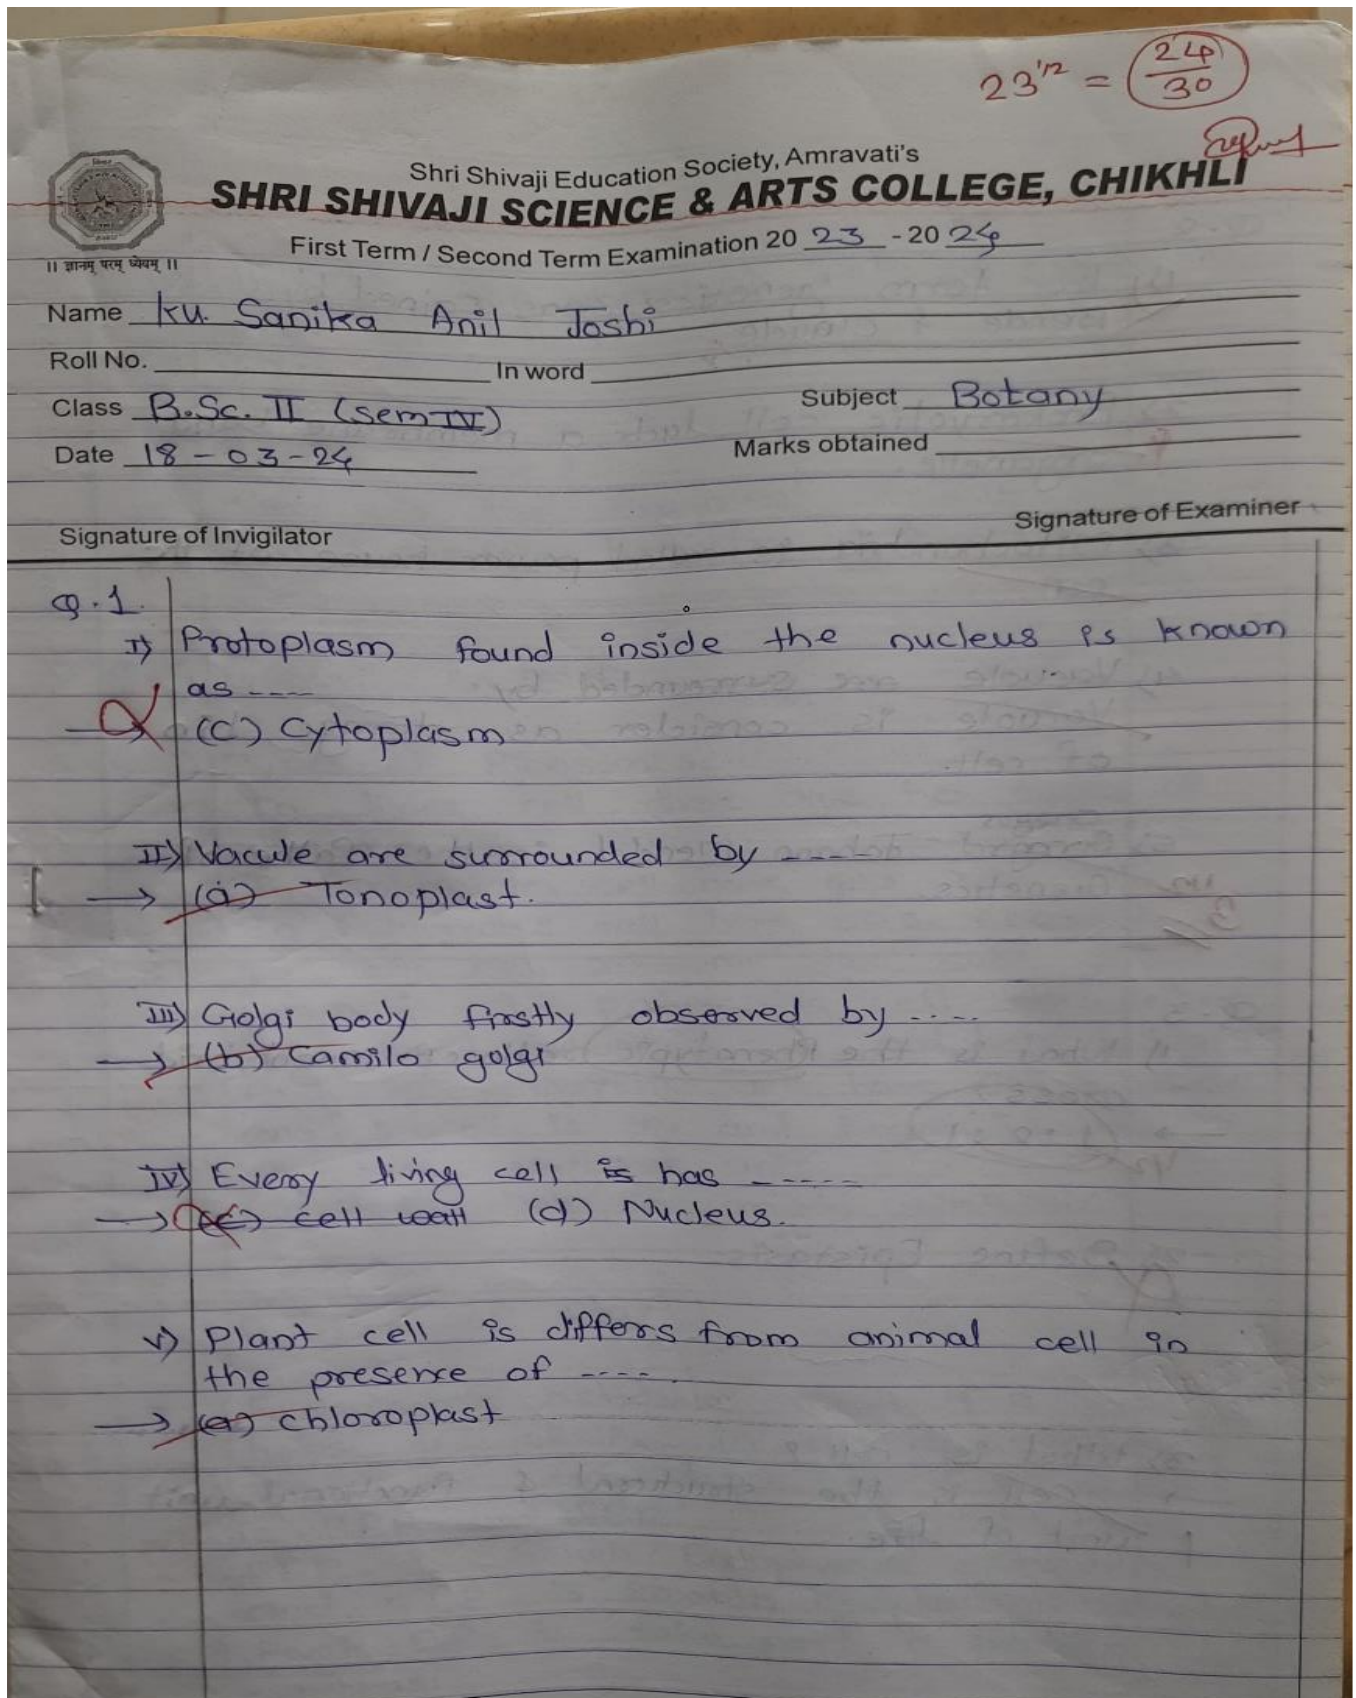 23 1/2 = 24/30
Shri Shivaji Education Society, Amravati's
SHRI SHIVAJI SCIENCE & ARTS COLLEGE, CHIKHLI
First Term / Second Term Examination 20 23 - 20 24
|| ज्ञानम् परम् ध्येयम् ||
Name Ku. Sanika Anil Joshi
Roll No. In word
Class B.Sc. II (sem IV) Subject Botany
Date 18-03-24 Marks obtained
Signature of Invigilator Signature of Examiner
Q.1.
I) Protoplasm found inside the nucleus is known
as ----
→ (c) Cytoplasm
II) Vacule are surrounded by ----
→ (a) Tonoplast.
III) Golgi body firstly observed by ----
→ (b) Camilo golgi
IV) Every living cell is has -----
→ (c) cell wall (d) Nucleus.
V) Plant cell is differs from animal cell in
the presence of ----.
→ (a) chloroplast